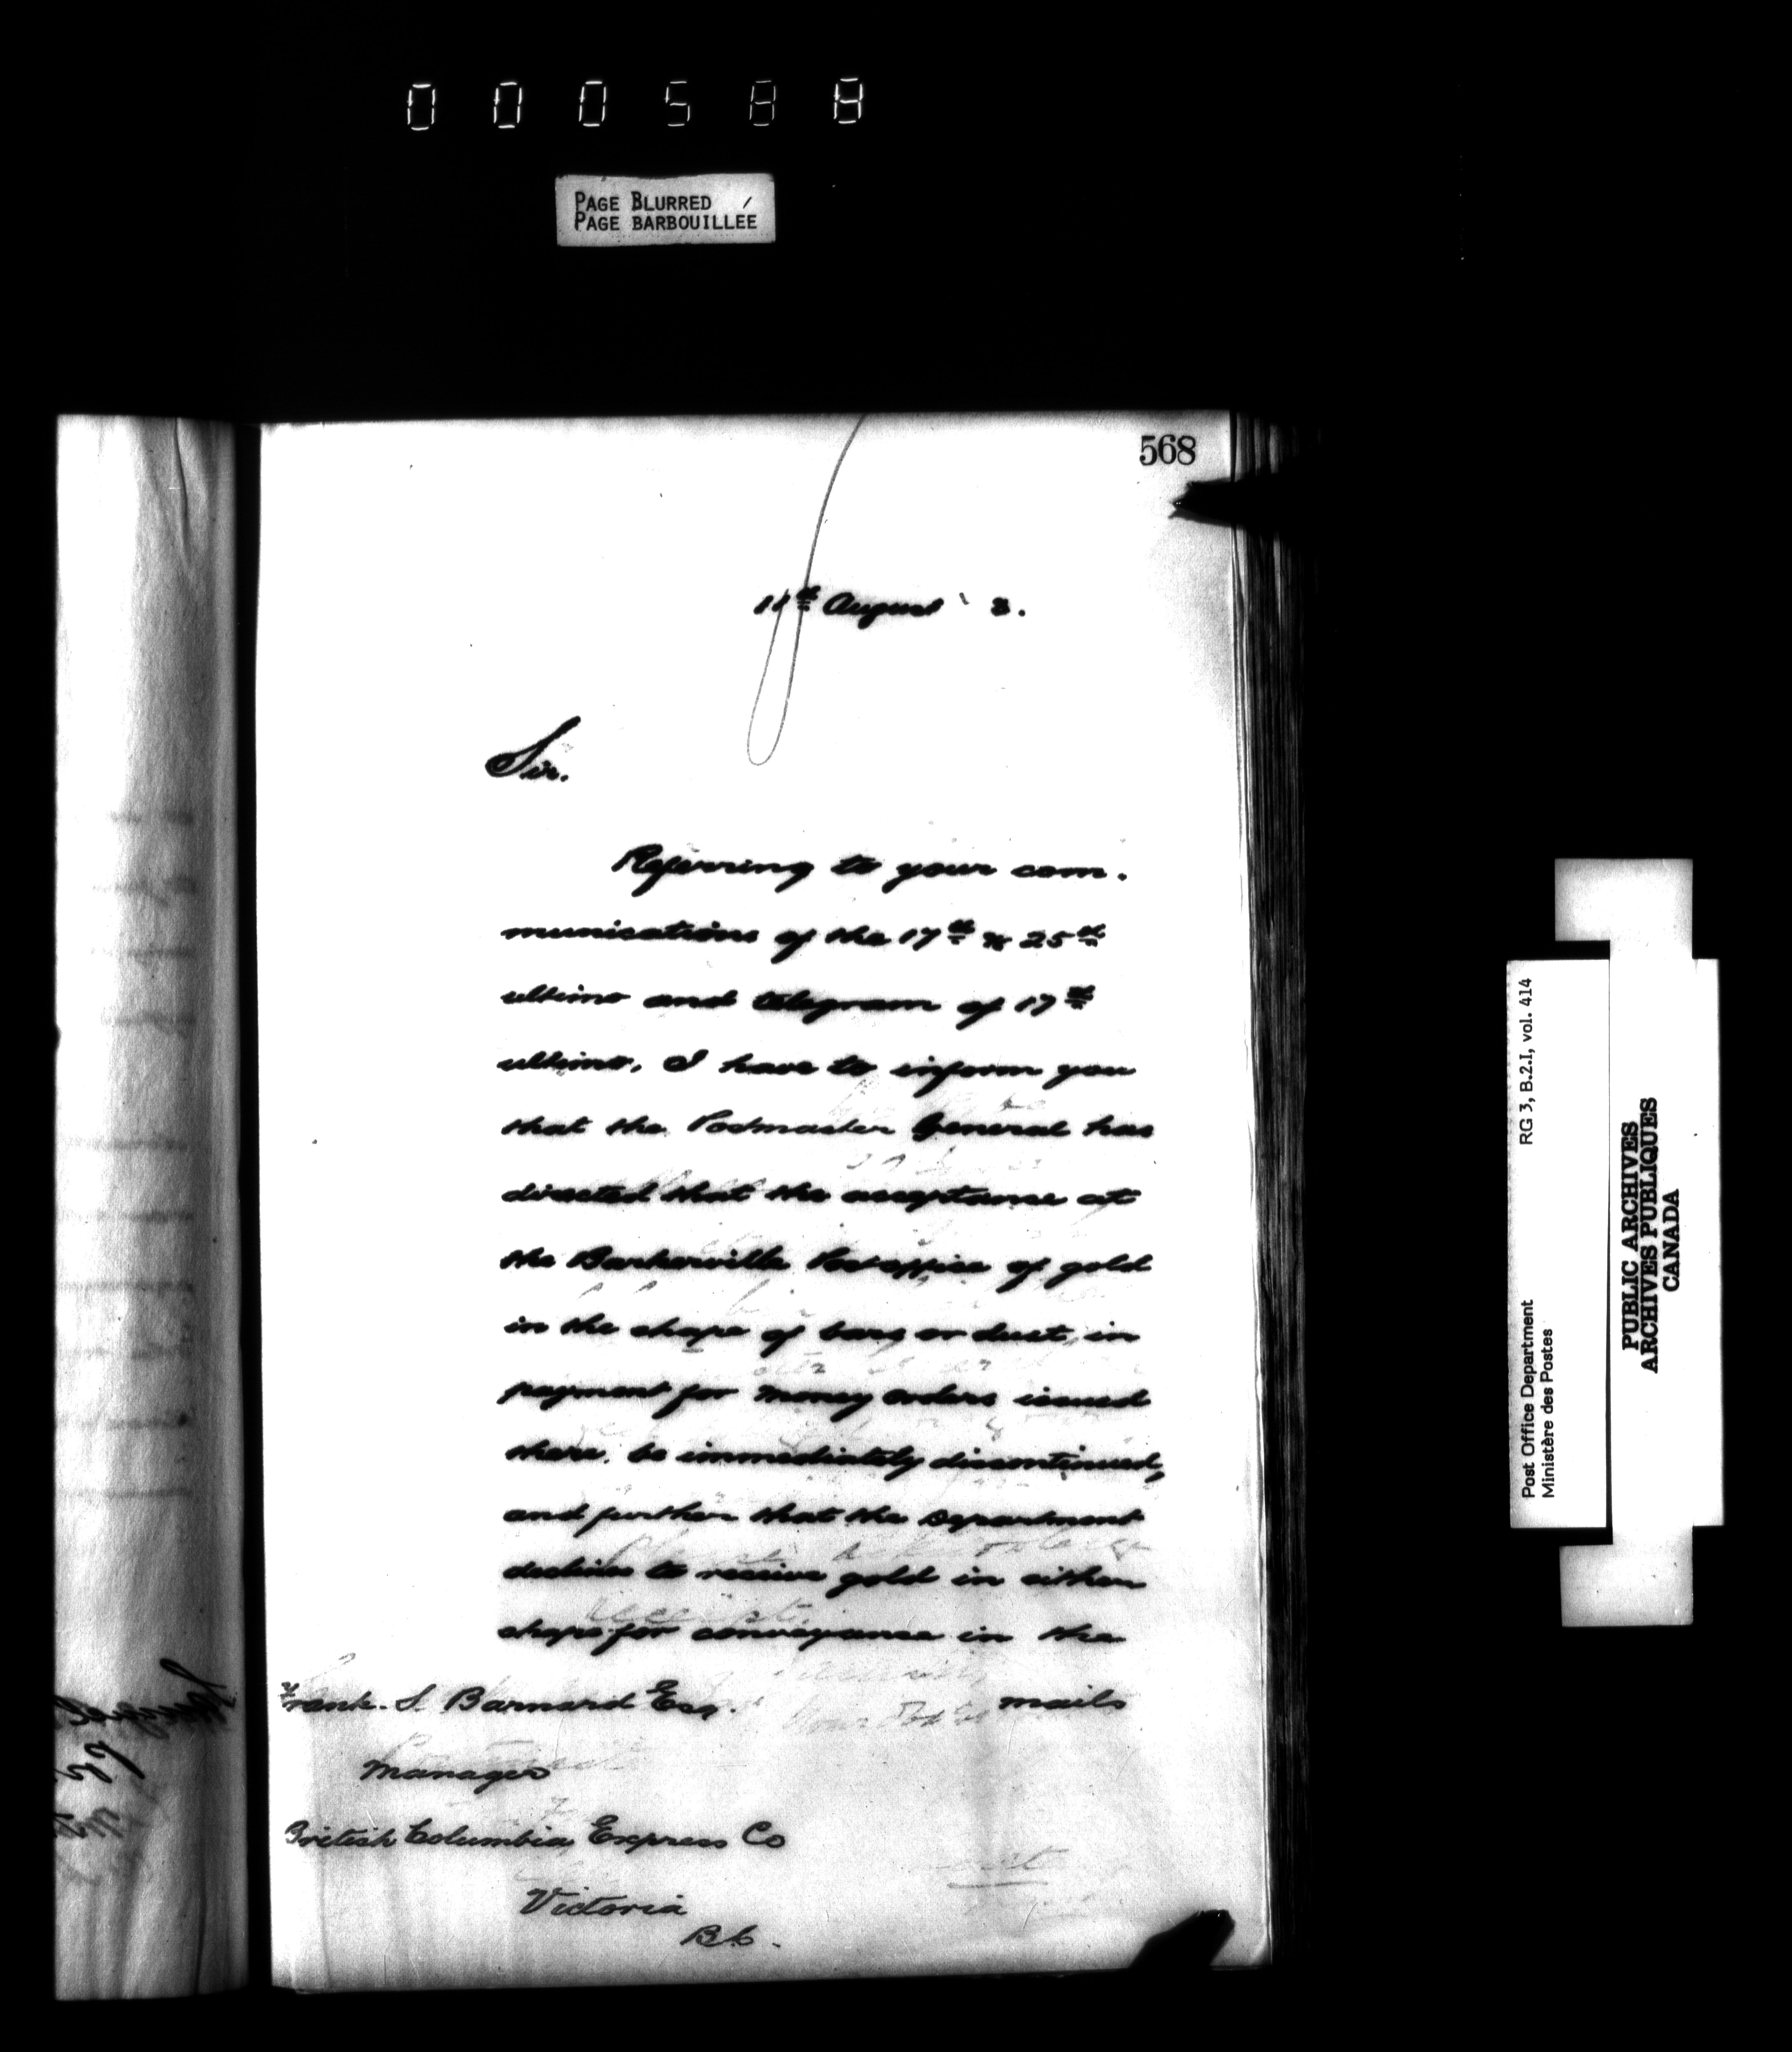 000588
PAGE BLURRED
PAGE BARBOUILLÉE
568
11th August 3.
Sir.
Referring to your com.
munications of the 17th & 25th
ultimo and telegram of 17th
ultimo, I have to inform you
that the Postmaster General has
directed that the acceptance at
the Barkerville Post office of gold
in the shape of bars or dust, in
payment for money orders issued
there, be immediately discontinued,
and further that the Department
declines to receive gold in either
shape for conveyance in the
mails
Frank. S. Barnard Esq.
Manager
British Columbia Express Co
Victoria
B.C.
RG 3, B.2.I, vol. 414
Post Office Department
Ministère des Postes
PUBLIC ARCHIVES
ARCHIVES PUBLIQUES
CANADA